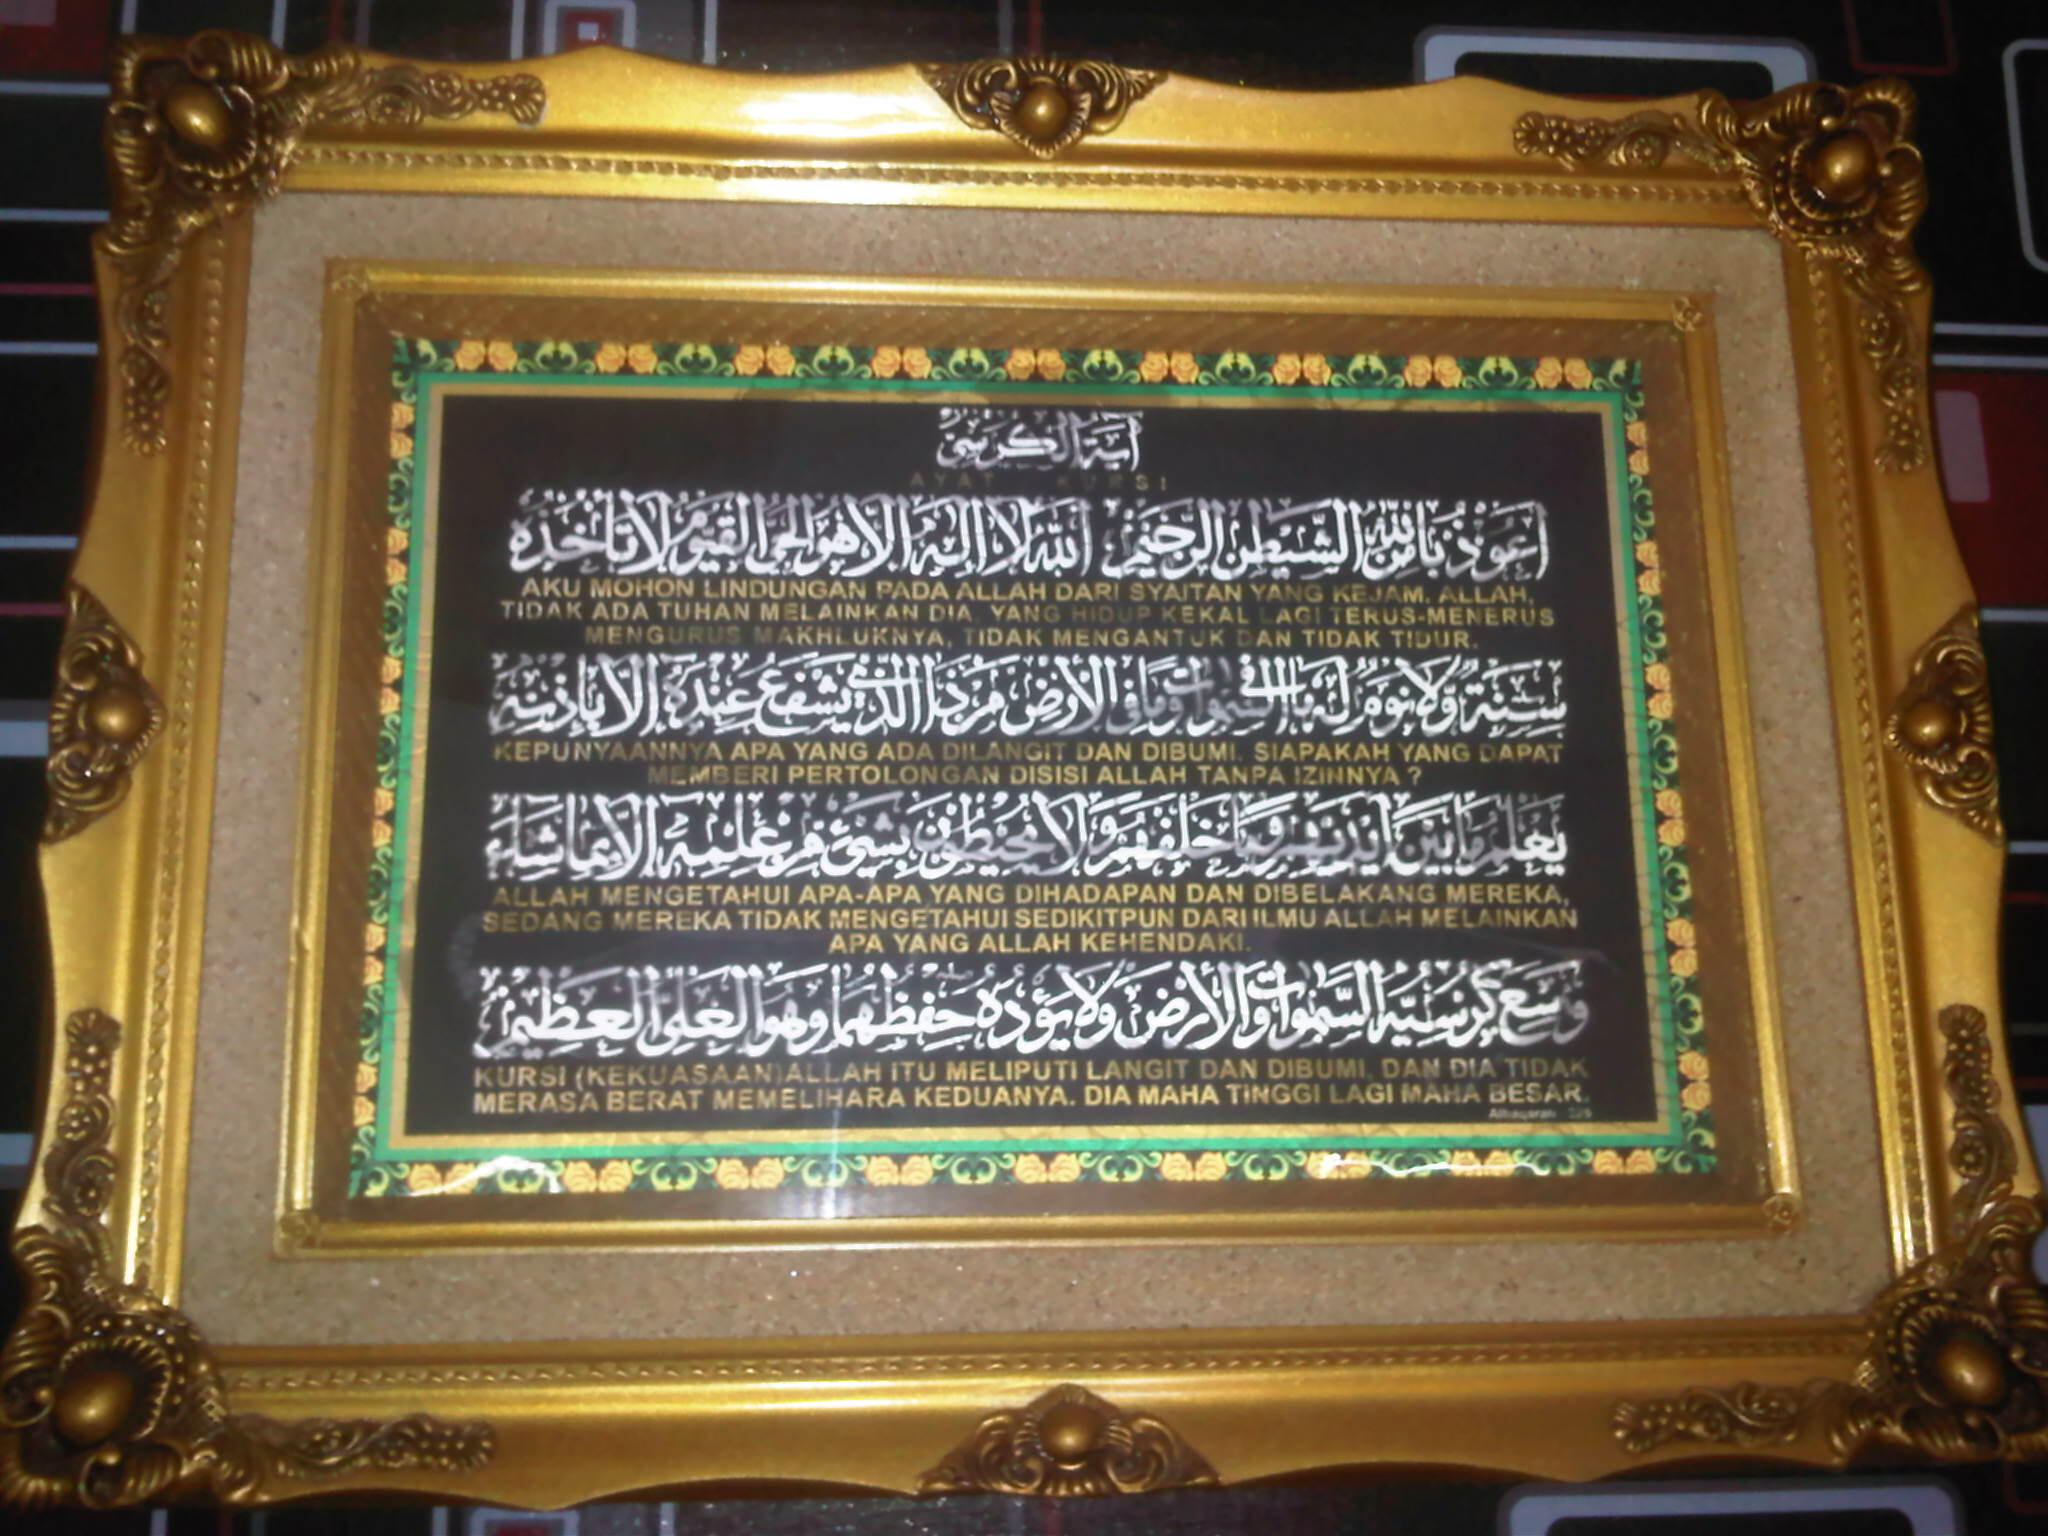 آية الكرسي
AYAT KURSI
اعوذ بالله من الشيطن الرجيم الله لا اله الا هو الحي القيوم لا تأخذه
AKU MOHON LINDUNGAN PADA ALLAH DARI SYAITAN YANG KEJAM. ALLAH,
TIDAK ADA TUHAN MELAINKAN DIA, YANG HIDUP KEKAL LAGI TERUS-MENERUS
MENGURUS MAKHLUKNYA, TIDAK MENGANTUK DAN TIDAK TIDUR.
سنة ولا نوم له ما في السموات وما في الأرض من ذا الذي يشفع عنده الا باذنه
KEPUNYAANNYA APA YANG ADA DILANGIT DAN DIBUMI. SIAPAKAH YANG DAPAT
MEMBERI PERTOLONGAN DISISI ALLAH TANPA IZINNYA ?
يعلم ما بين ايديهم وما خلفهم ولا يحيطون بشيء من علمه الا بما شاء
ALLAH MENGETAHUI APA-APA YANG DIHADAPAN DAN DIBELAKANG MEREKA,
SEDANG MEREKA TIDAK MENGETAHUI SEDIKITPUN DARI ILMU ALLAH MELAINKAN
APA YANG ALLAH KEHENDAKI.
وسع كرسيه السموات والأرض ولا يؤده حفظهما وهو العلي العظيم
KURSI (KEKUASAAN)ALLAH ITU MELIPUTI LANGIT DAN DIBUMI, DAN DIA TIDAK
MERASA BERAT MEMELIHARA KEDUANYA. DIA MAHA TINGGI LAGI MAHA BESAR.
Albaqarah